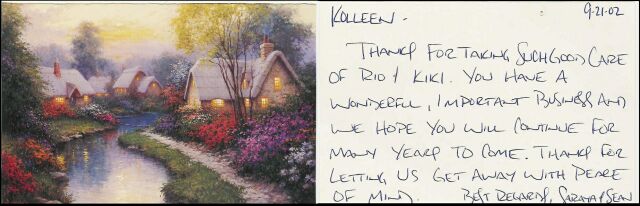 KOLLEEN - 9-21-02
THANKS FOR TAKING SUCH GOOD CARE
OF RIO & KIKI. YOU HAVE A
WONDERFUL, IMPORTANT BUSINESS AND
WE HOPE YOU WILL CONTINUE FOR
MANY YEARS TO COME. THANKS FOR
LETTING US GET AWAY WITH PEACE
OF MIND. BEST REGARDS, SARAH & SEAN